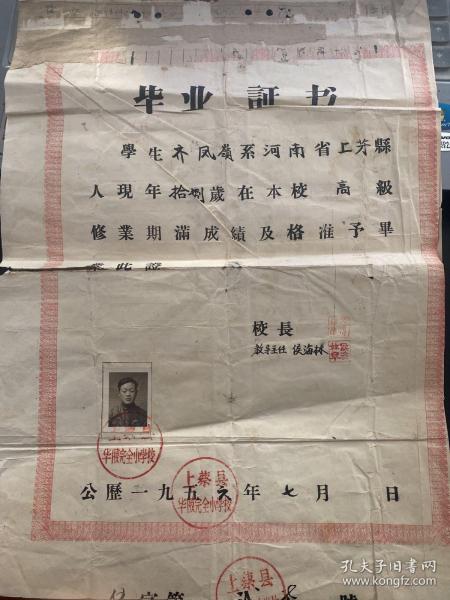 毕业証书
學生齐凤嶺系河南省上芳縣
人現年拾捌歲在本校高級
修業期滿成績及格准予畢
業此證
校長
教导主任 侯海林
华陂完全小学校
上蔡县
华陂完全小学校
公歷一九五六年七月 日
上蔡县
字第 號
孔夫子旧书网